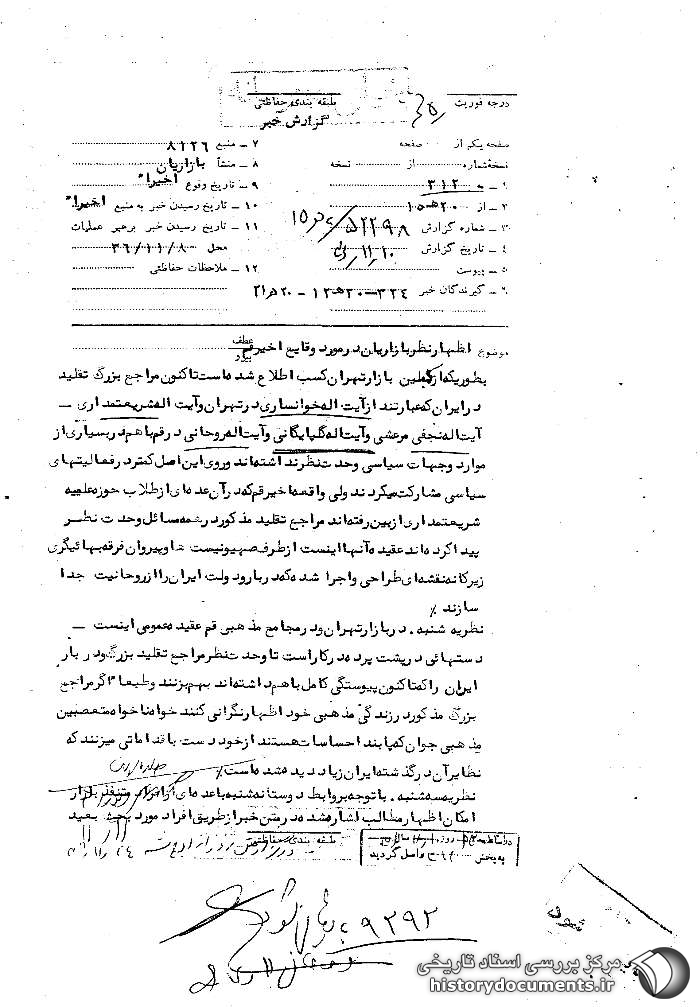 درجه فوریت
طبقه بندی حفاظتی
گزارش خبر
صفحه یک از صفحه
نسخه شماره از نسخه
۱ – به ۳۱۲
۲ – از ۲۰ ه ۱۵
۳ – شماره گزارش ۵۲۲۹۸ / ۲۰ ه ۱۵
۴ – تاریخ گزارش ۱۰ / ۱۱ /
۵ – پیوست
۶ – گیرندگان خبر ۳۲۴ – ۲۰ ه ۱۲ – ۲۰ ه ۲۱
۷ – منبع ۸۱۲۶
۸ – منشأ بازاریان
۹ – تاریخ وقوع اخیرا"
۱۰ – تاریخ رسیدن خبر به منبع اخیرا"
۱۱ – تاریخ رسیدن خبر برهبر عملیات
محل ۳۶/۱۱/۸
۱۲ – ملاحظات حفاظتی
موضوع اظهارنظر بازاریان در مورد وقایع اخیر قم
عطف
پیرو
بطوریکه از بازار تهران کسب اطلاع شده است تاکنون مراجع بزرگ تقلید
در ایران که عبارتند از آیت اله خوانساری در تهران و آیت اله شریعتمداری –
آیت اله نجفی مرعشی و آیت اله گلپایگانی و آیت اله روحانی در قم با هم در بسیاری از
موارد و جهات سیاسی وحدت نظر نداشته اند و روی این اصل کمتر در فعالیتهای
سیاسی مشارکت میکردند ولی واقعه اخیر قم که در آن عده ای از طلاب حوزه علمیه
شریعتمداری از بین رفته اند مراجع تقلید مذکور در همه مسائل وحدت نظر
پیدا کرده اند عقیده آنها اینست از طرف صهیونیست ها و پیروان فرقه بهائیگری
زیرکانه نقشه ای طراحی و اجرا شده که دربار و دولت ایران را از روحانیت جدا
سازند ٪
نظریه شنبه . در بازار تهران و در مجامع مذهبی قم عقیده عمومی اینست –
دستهائی در پشت پرده در کار است تا وحدت نظر مراجع تقلید بزرگ و دربار
ایران را که تاکنون پیوستگی کامل با هم داشته اند بهم بزنند و طبعا" اگر مراجع
بزرگ مذکور در زندگی مذهبی خود اظهار نگرانی کنند خواه ناخواه متعصبین
مذهبی جوان که پابند احساسات هستند از خود دست باقداماتی میزنند که
نظایر آن در گذشته ایران زیاد دیده شده است ٪
نظریه سه شنبه . با توجه بروابط دوستانه شنبه با عده ای از افراد متنفذ بازار
امکان اظهار مطالب اشاره شده در متن خبر از طریق افراد مورد بحث بعید
طبقه بندی حفاظتی
به بخش ۳۱۲ واصل گردید
۹۲۹۲
مرکز بررسی اسناد تاریخی
historydocuments.ir